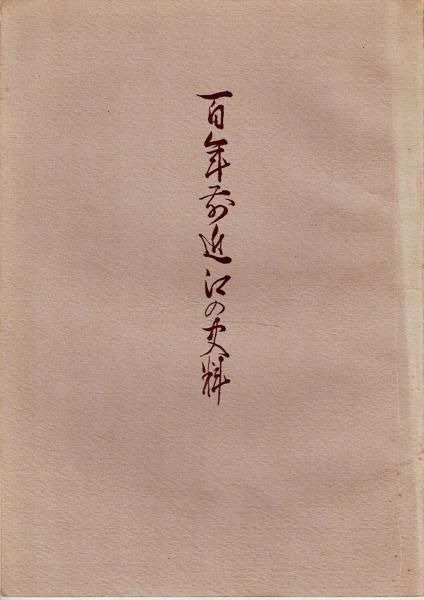 百年前近江の史料